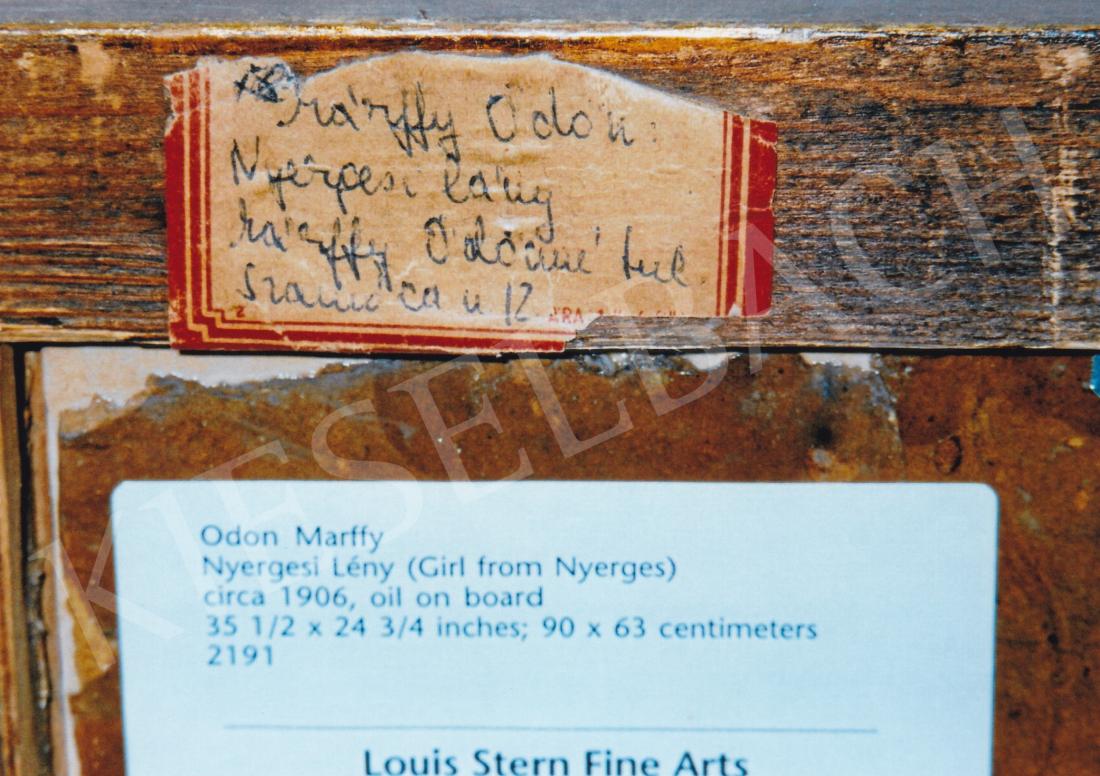 Márffy Ödön:
Nyergesi lány
Márffy Ödönné tul.
2
KIESELBACH
Odon Marffy
Nyergesi Lény (Girl from Nyerges)
circa 1906, oil on board
35 1/2 x 24 3/4 inches; 90 x 63 centimeters
2191
Louis Stern Fine Arts